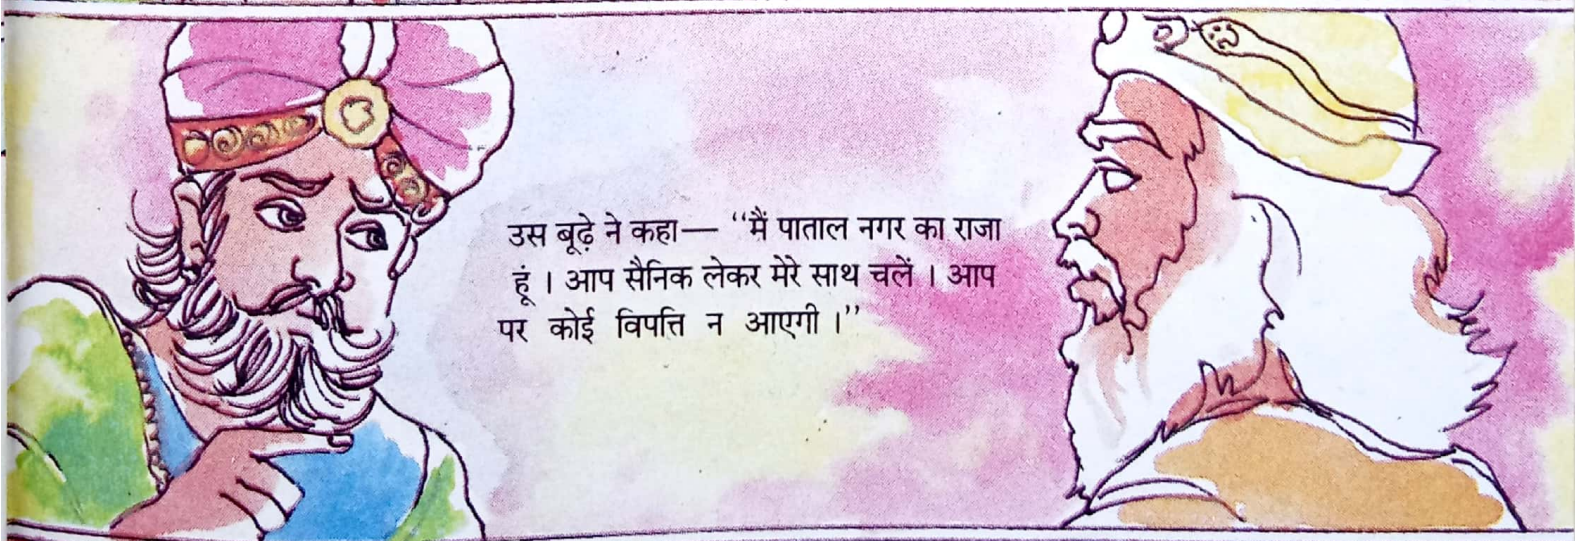 उस बूढ़े ने कहा— “मैं पाताल नगर का राजा
हूं । आप सैनिक लेकर मेरे साथ चलें । आप
पर कोई विपत्ति न आएगी ।”